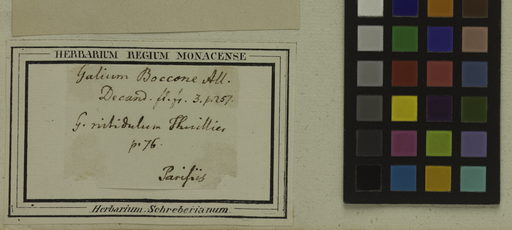 HERBARIUM REGIUM MONACENSE
Galium Boccone All.
Decand. fl. fr. 3. p. 257.
G. nitidulum Thuillier
p. 76.
Parisiis
Herbarium Schreberianum.